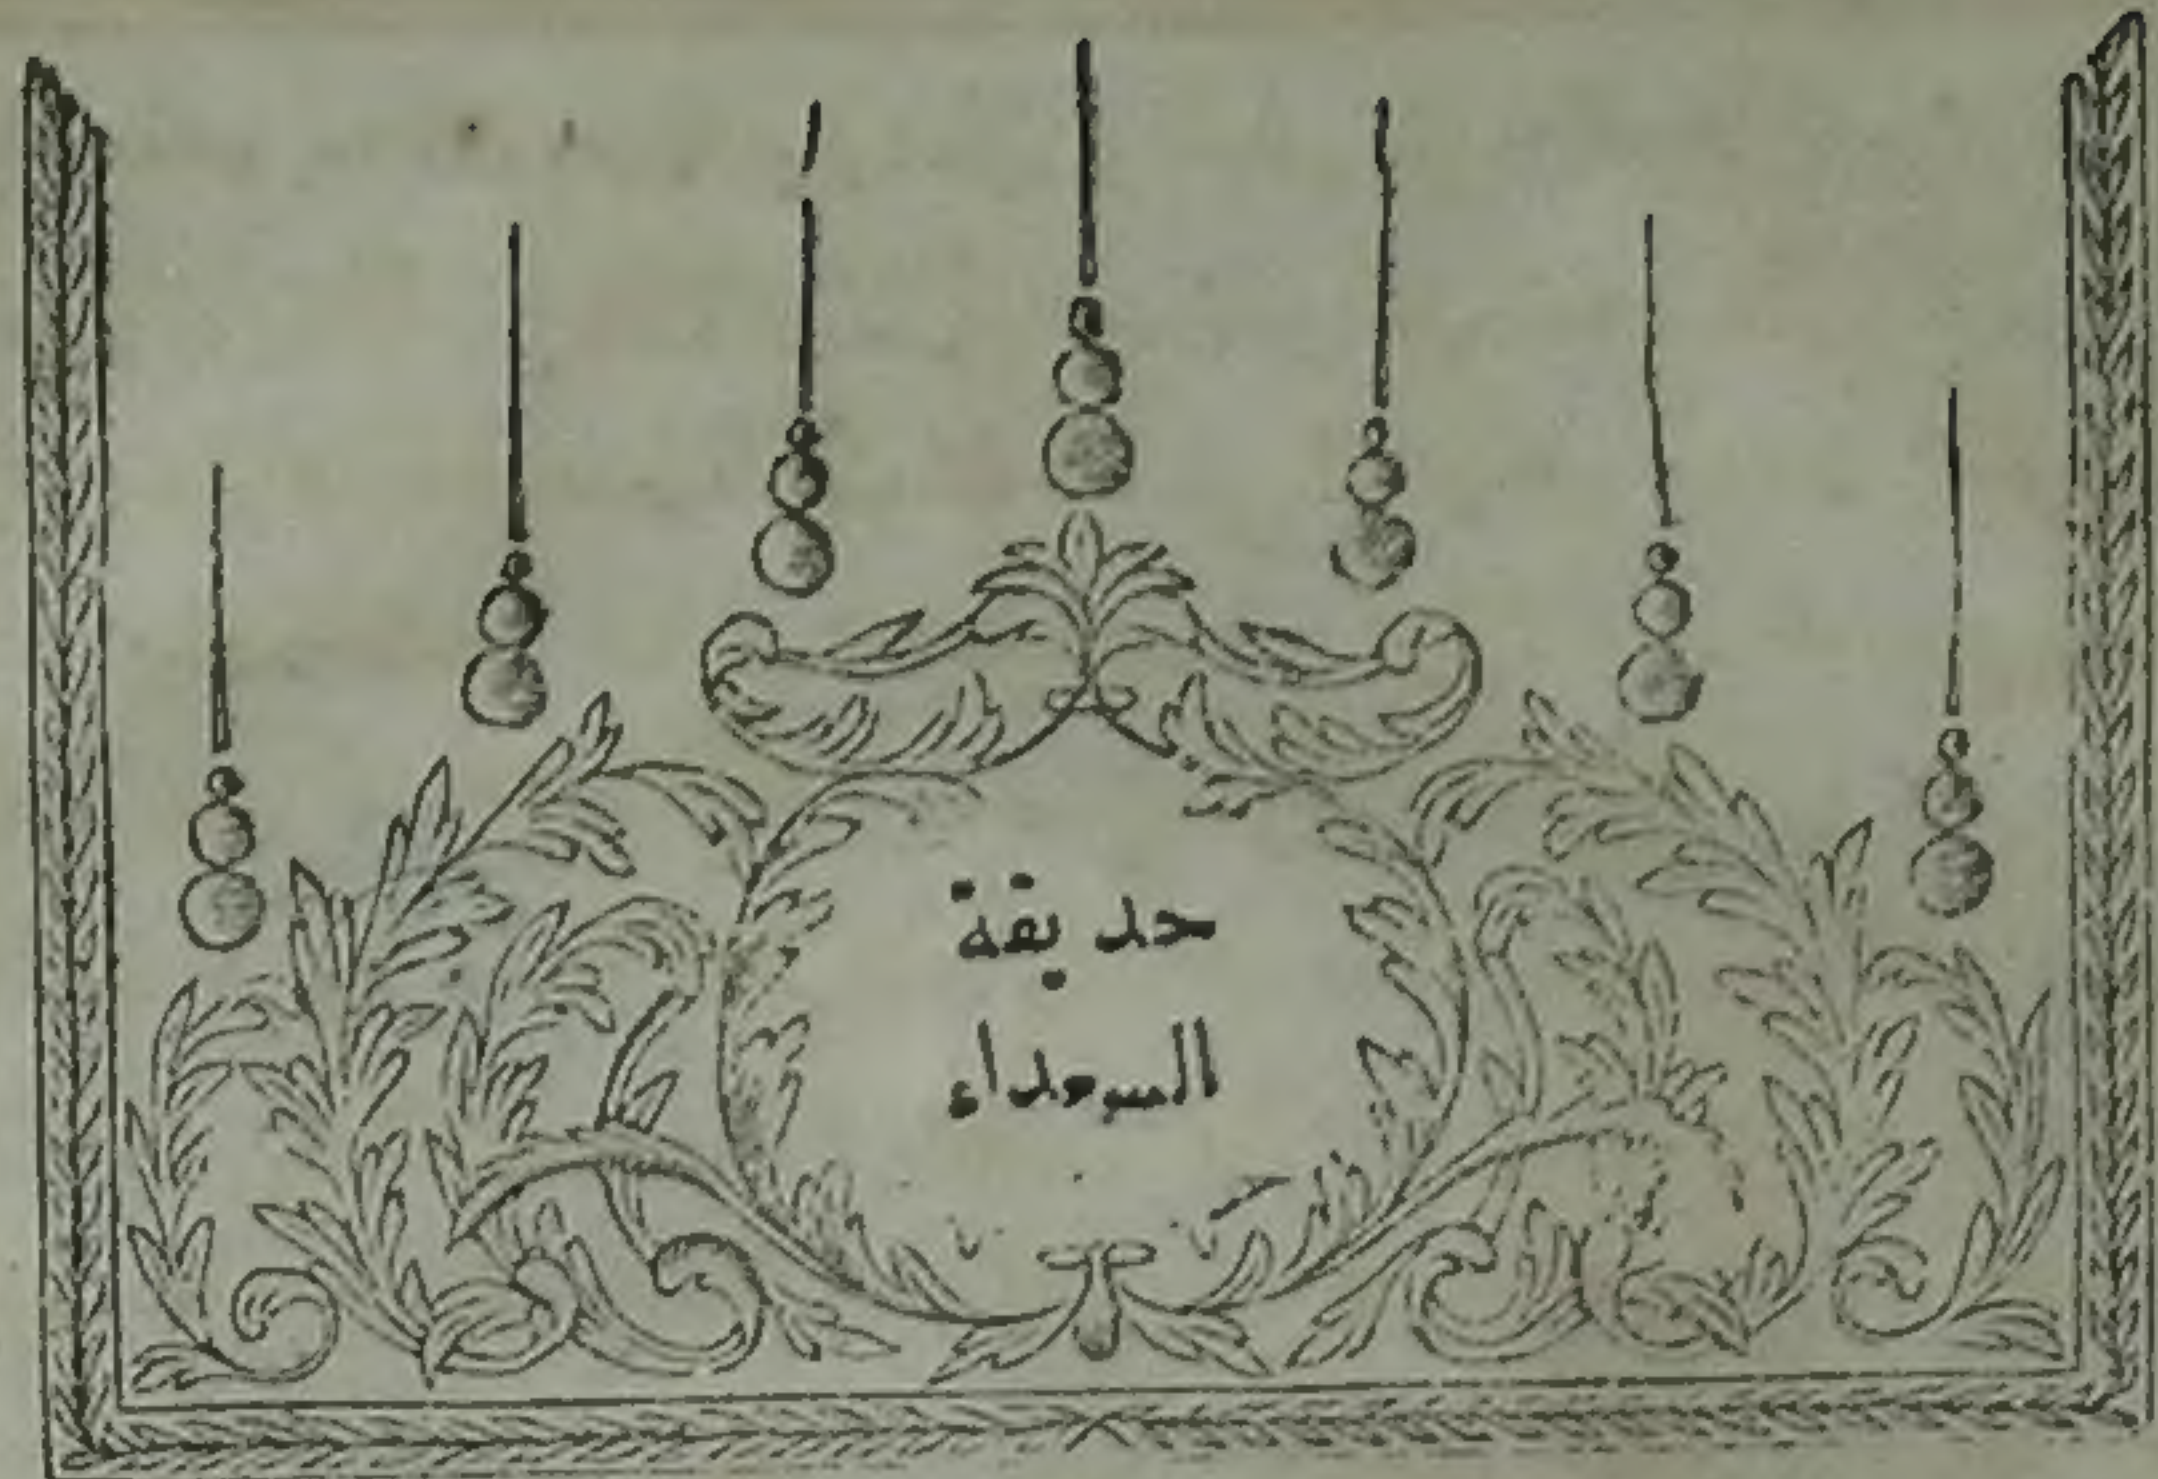 حديقة
السعداء